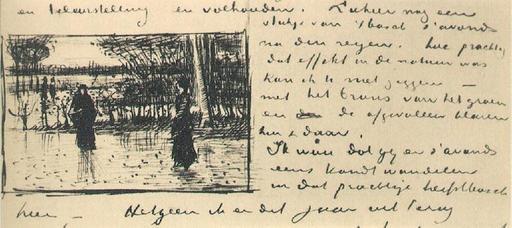 en teleurstelling en volhouden. Ziehier nog een
van 't bosch s'avonds
na den regen. hoe prachtig
dat effekt in de natuur was
kan ik U niet zeggen –
met het brons van het groen
en de afgevallen blaren
hier & daar.
Ik wou dat gij er s'avonds
eens kondt wandelen
in dat prachtige herfstbosch
hier – Hetgeen ik er dit jaar uit terug